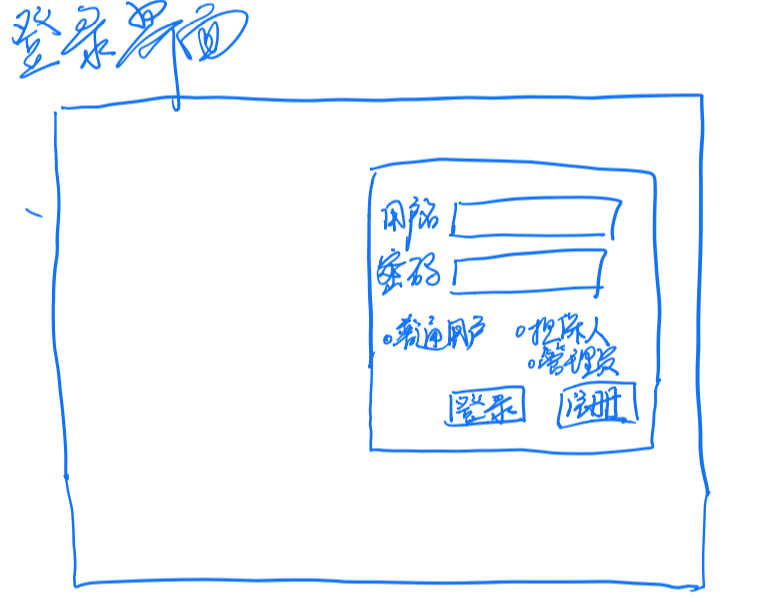 登录界面
用户名
密码
普通用户 担保人
管理员
登录 注册